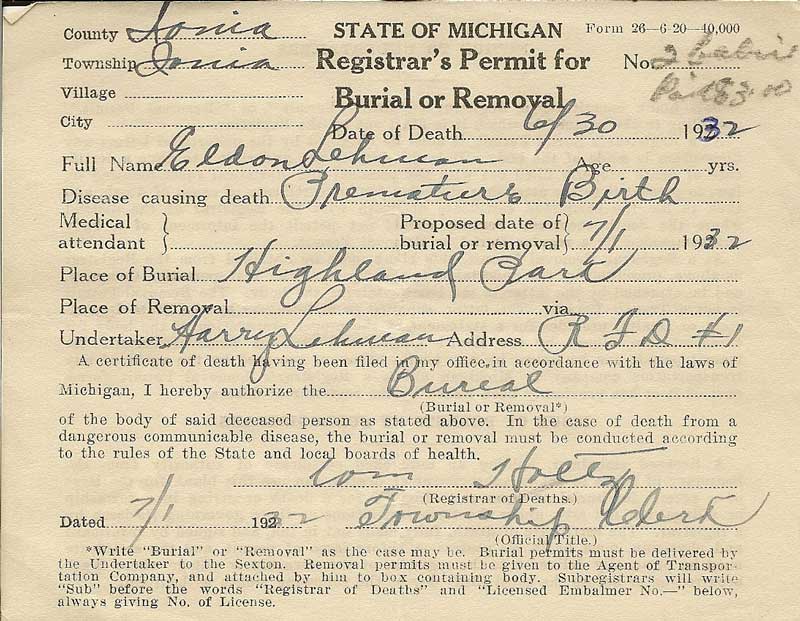 County Ionia STATE OF MICHIGAN Form 26-6-20-40,000
Township Ionia Registrar's Permit for No. 2 Babies
Village Burial or Removal Paid $3.00
City Date of Death 6/30 1932
Full Name Eldon Lehman Age yrs.
Disease causing death Premature Birth
Medical attendant } Proposed date of burial or removal } 7/1 1932
Place of Burial Highland Park
Place of Removal via
Undertaker Harry Lehman Address R F D #1
A certificate of death having been filed in my office in accordance with the laws of
Michigan, I hereby authorize the Bureal
(Burial or Removal*)
of the body of said deceased person as stated above. In the case of death from a
dangerous communicable disease, the burial or removal must be conducted according
to the rules of the State and local boards of health.
Holtz
(Registrar of Deaths.)
Dated 7/1 1932 Township Clerk
(Official Title.)
*Write "Burial" or "Removal" as the case may be. Burial permits must be delivered by
the Undertaker to the Sexton. Removal permits must be given to the Agent of Transpor-
tation Company, and attached by him to box containing body. Subregistrars will write
"Sub" before the words "Registrar of Deaths" and "Licensed Embalmer No.—" below,
always giving No. of License.